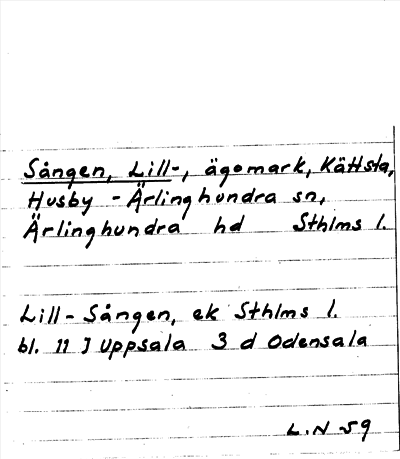 Sången, Lill-, ägomark, Kättsta,
Husby - Ärlinghundra sn,
Ärlinghundra hd Sthlms l.
Lill-Sången, ek Sthlms l.
bl. 11 J Uppsala 3 d Odensala
L.N 59